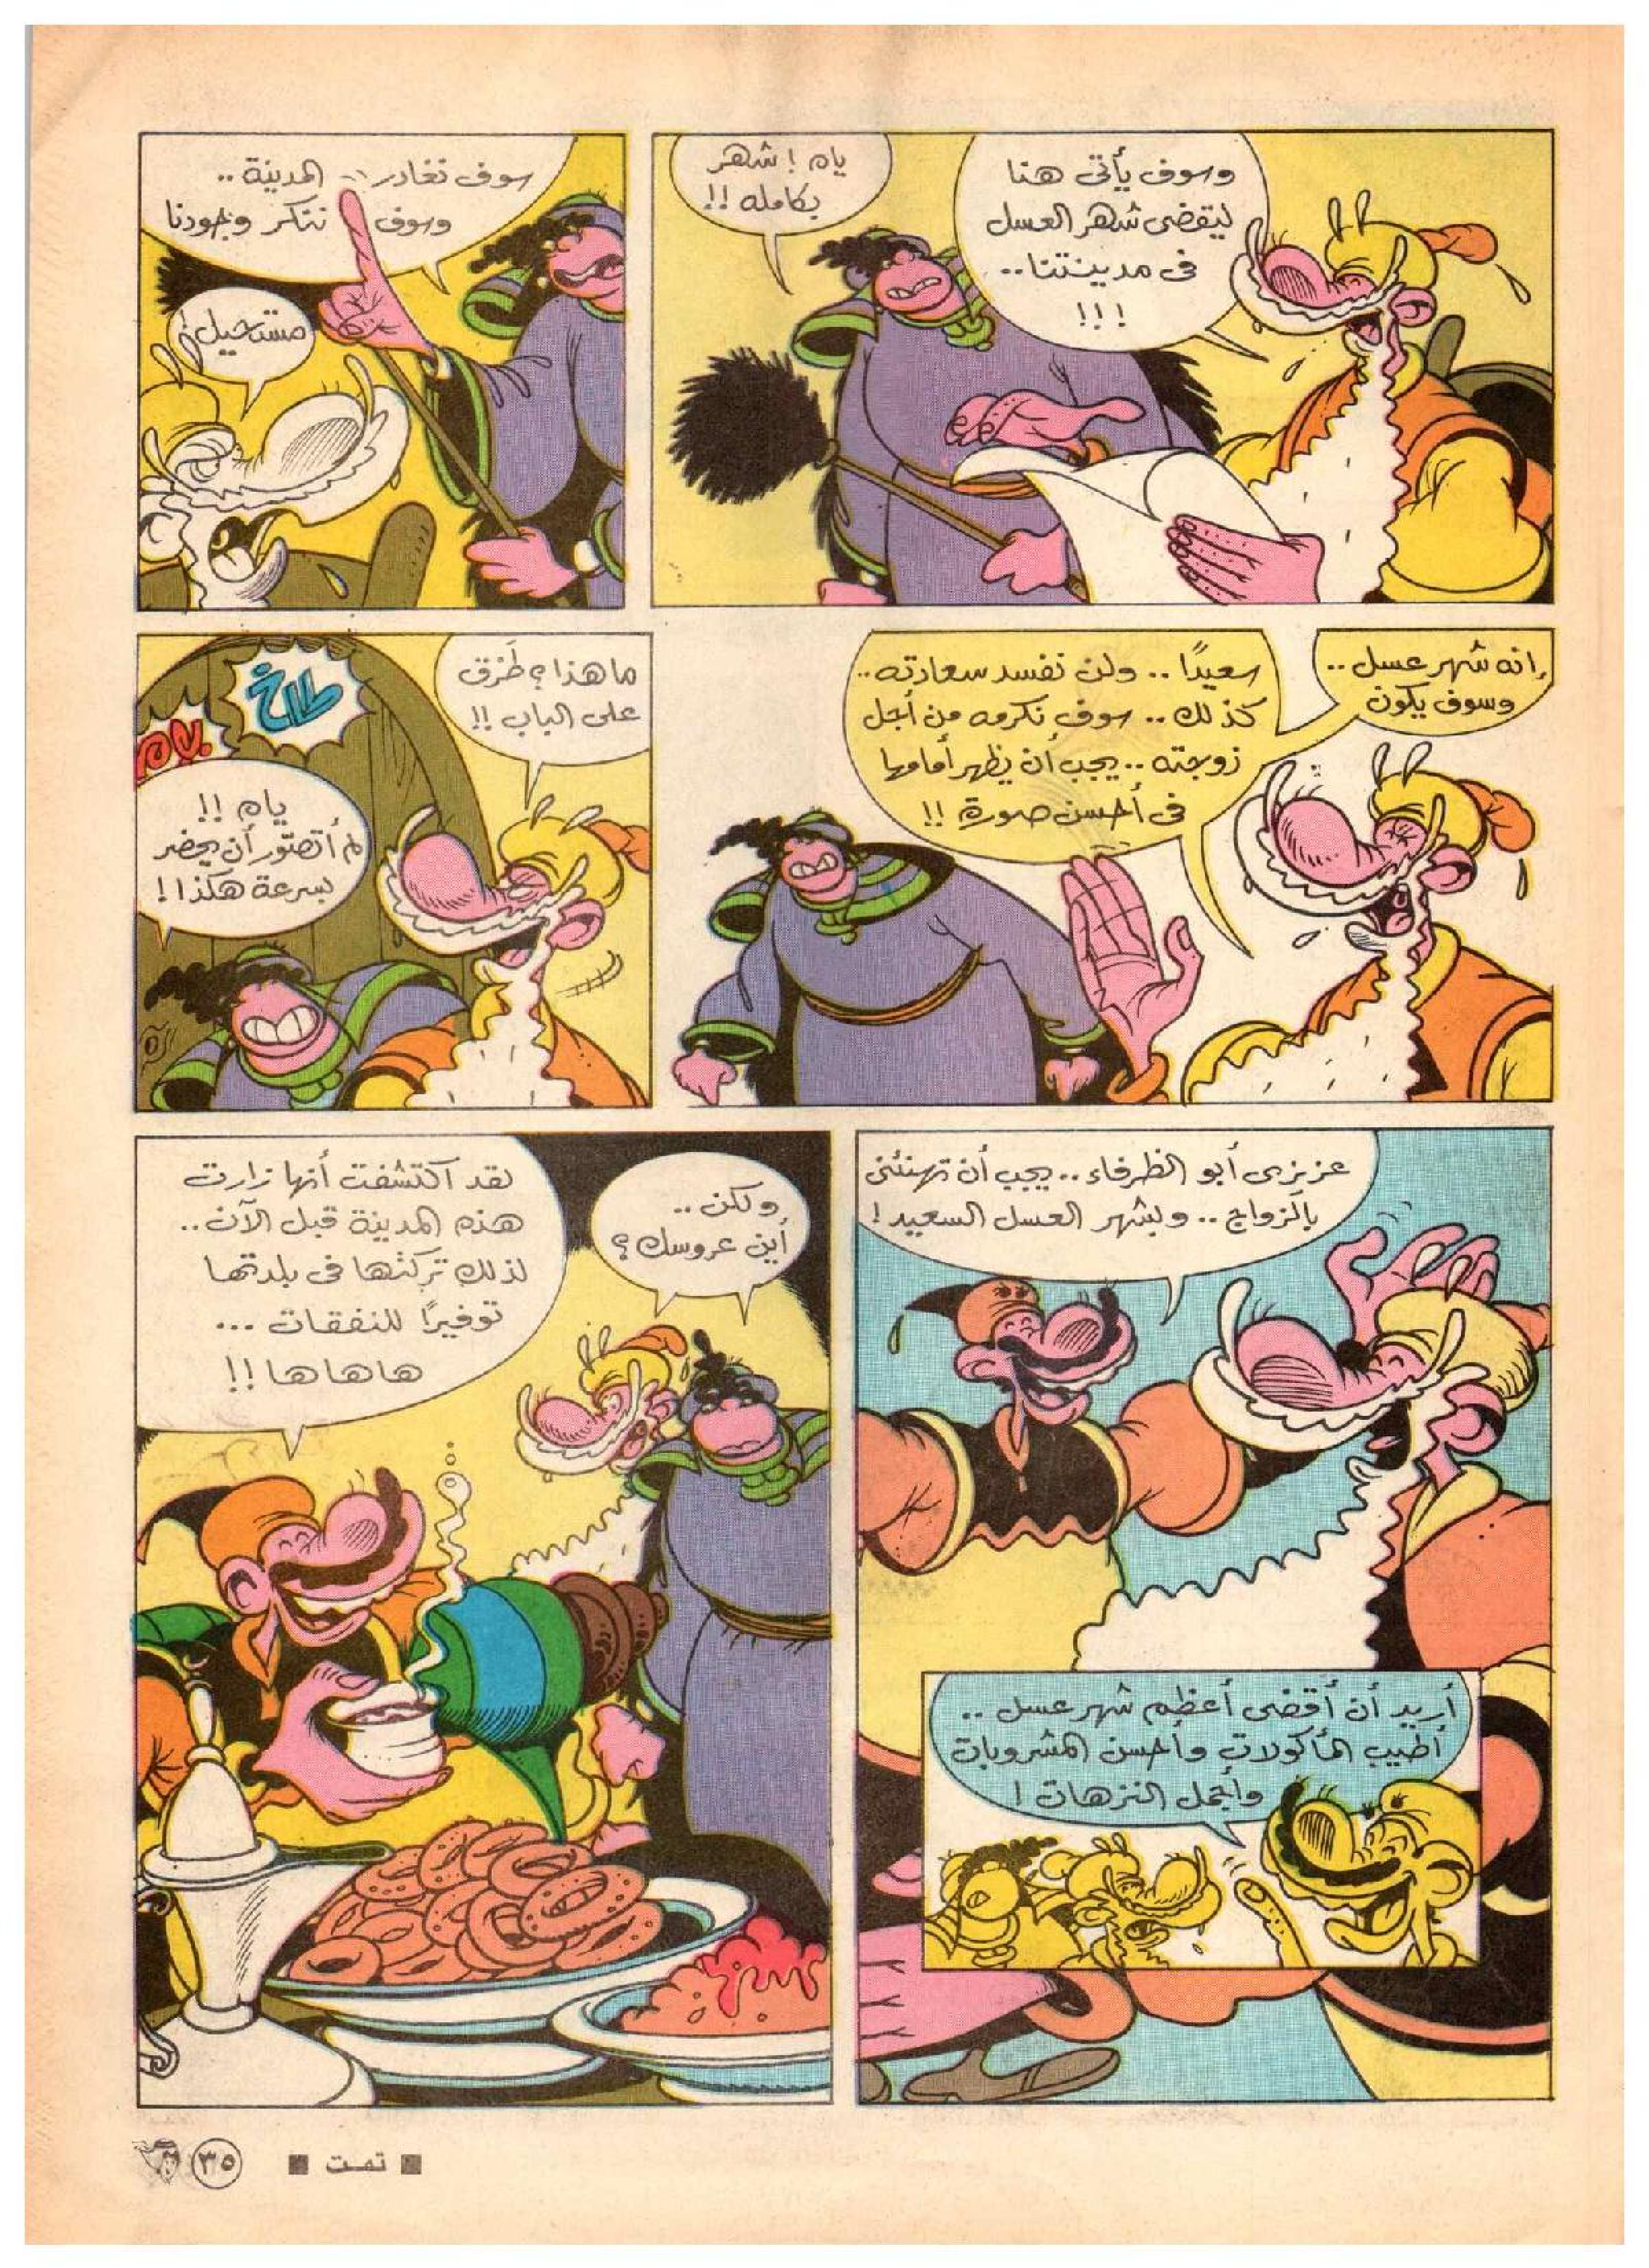 وسوف يأتى هنا
ليقضى شهر العسل
فى مدينتنا..
!!!
ياه ! شهر
بكامله !!
سوف نغادر المدينة ..
وسوف نتنكر وجودنا
مستحيل !
إنه شهر عسل ..
وسوف يكون
سعيدًا .. ولن نفسد سعادته ..
كذلك .. سوف نكرمه من أجل
زوجته .. يجب أن يظهر أمامها
فى أحسن صورة !!
ما هذا ؟ طَرْق
على الباب !!
طاخ
ياه !!
لم أتصوّر أن يحضر
بسرعة هكذا !
عزيزى أبو الظرفاء .. يجب أن تهنئنى
بالزواج .. وبشهر العسل السعيد !
أريد أن أقضى أعظم شهر عسل ..
أطيب المأكولات وأحسن المشروبات
وأجمل النزهات !
ولكن ..
أين عروسك ؟
لقد اكتشفت أنها زارت
هذه المدينة قبل الآن ..
لذلك تركتها فى بلدتها
توفيرًا للنفقات ...
هاهاها !!
■ تمت ■
٣٥